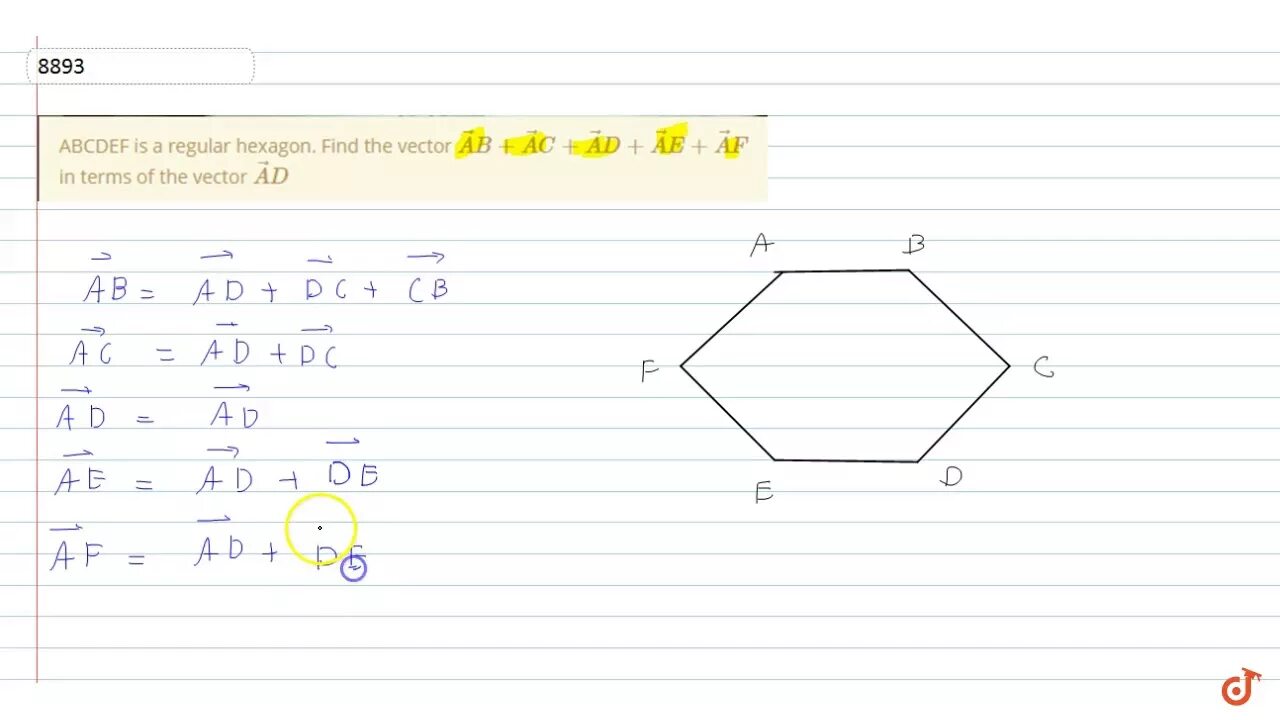 8893
ABCDEF is a regular hexagon. Find the vector A⃗B + A⃗C + A⃗D + A⃗E + A⃗F
in terms of the vector A⃗D
A B
AB = AD + DC + CB
AC = AD + DC
F C
AD = AD
AE = AD + DE
E D
AF = AD + DE